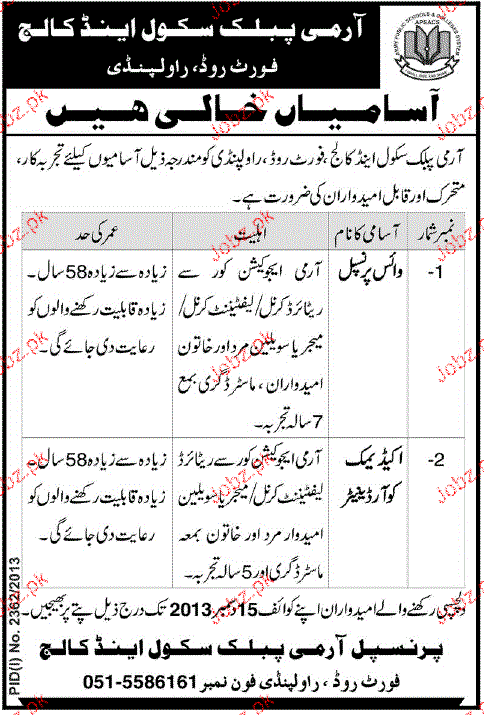 آرمی پبلک سکول اینڈ کالج
فورٹ روڈ، راولپنڈی
ARMY PUBLIC SCHOOLS & COLLEGES SYSTEM
APSACS
آسامیاں خالی ھیں
آرمی پبلک سکول اینڈ کالج، فورٹ روڈ، راولپنڈی کو مندرجہ ذیل آسامیوں کیلئے تجربہ کار،
متحرک اور قابل امیدواران کی ضرورت ہے۔
نمبر شمار آسامی کا نام اہلیت عمر کی حد
1- وائس پرنسپل
آرمی ایجوکیشن کور سے
ریٹائرڈ کرنل/لیفٹیننٹ کرنل/
میجر یا سویلین مرد اور خاتون
امیدواران، ماسٹر ڈگری بمع
7 سالہ تجربہ۔
زیادہ سے زیادہ 58 سال۔
زیادہ قابلیت رکھنے والوں کو
رعایت دی جائے گی۔
2- اکیڈیمک
کوآرڈینیٹر
آرمی ایجوکیشن کور سے ریٹائرڈ
لیفٹیننٹ کرنل/میجر یا سویلین
امیدوار مرد اور خاتون بمعہ
ماسٹر ڈگری اور 5 سالہ تجربہ۔
زیادہ سے زیادہ 58 سال۔
زیادہ قابلیت رکھنے والوں کو
رعایت دی جائے گی۔
دلچسپی رکھنے والے امیدواران اپنے کوائف 15 دسمبر 2013 تک درج ذیل پتے پر بھیجیں۔
پرنسپل آرمی پبلک سکول اینڈ کالج
فورٹ روڈ، راولپنڈی فون نمبر 051-5586161
PID(I) No. 2362/2013
Jobz.pk